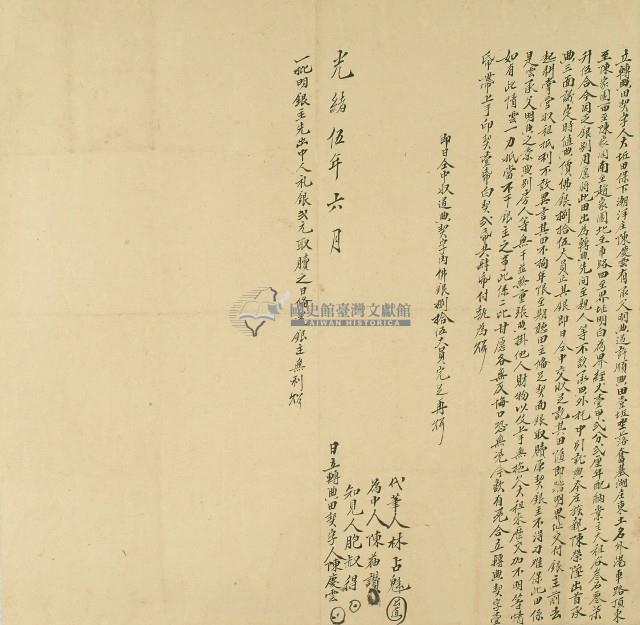 立轉典田契字人大坵田保下潮洋庄陳慶雲有承父明典過許順典田壹坵坐落會基湖庄東土名外港車路頂東
至陳家園西至陳家園南至趙家園北至車路四至界址明白為界經丈壹甲貳分貳厘年配納業主大租谷叁石叁斗
升伍合今因乏銀別用愿將此田出為轉典先問至親人等不欲承田外托中引就典本庄族親陳榮陞出首承
典三面議定時值典價佛銀捌拾伍大員正其銀即日仝中交收足訖其田隨即踏明界址交付銀主前去
起耕掌管收租抵利不敢異言其田不拘年限至期聽田主備足契面銀取贖原契銀主不得刁難保此田係
是雲承父明典之業與別房人等無干並無重張典掛他人財物以及上手無拖欠大租來歷交加不明等情
如有此情雲一力抵當不干銀主之事此係二比甘愿各無反悔口恐無憑今欲有憑合立轉典契字壹
紙帶上手印契壹紙白契貳紙共肆紙付執為炤
即日仝中收過典契字內佛銀捌拾伍大員完足再炤
光緒伍年六月
一批明銀主先出中人礼銀貳元取贖之日備還銀主無利炤
代筆人林占魁
為中人陳福讚
知見人胞叔得
日立轉典田契字人陳慶雲
國史館臺灣文獻館
TAIWAN HISTORICA